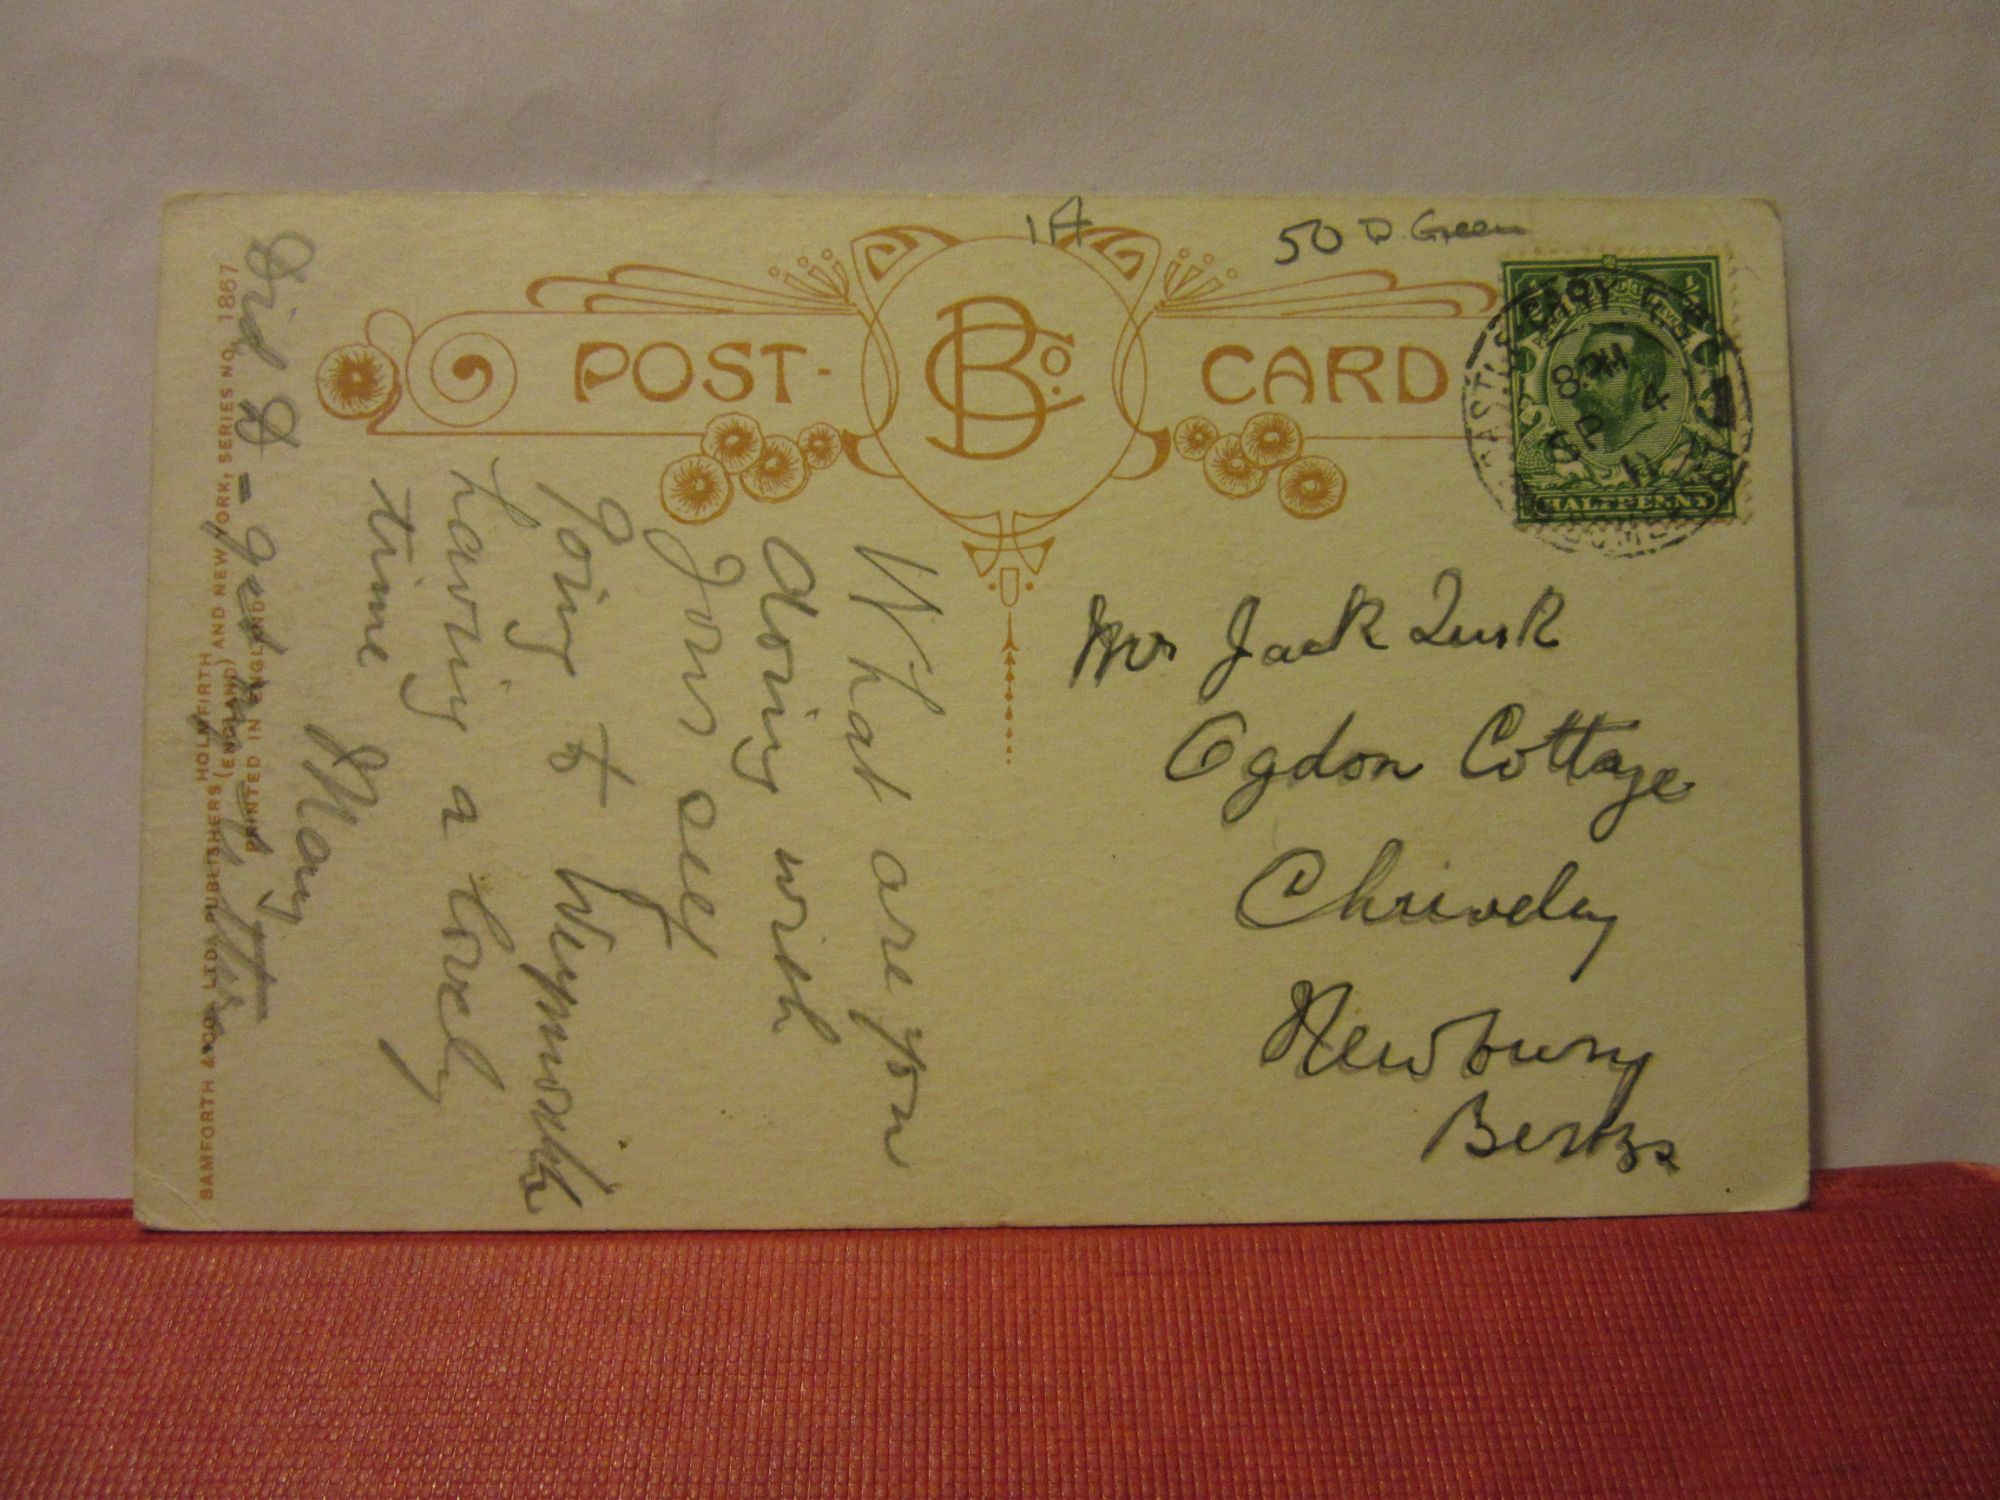 1A
50 D. Green
POST-CARD
BCo.
HALFPENNY
8. PM
SP 4
11
Mr Jack Lusk
Ogdon Cottage
Chrieveley
Newbury
Berks
What are you
doing with
Your self
going to Weymouth
having a lovely
time
Mary
Did I get my letter
BAMFORTH & CO. LTD., PUBLISHERS HOLMFIRTH (ENGLAND) AND NEW YORK, SERIES NO. 1867
PRINTED IN ENGLAND